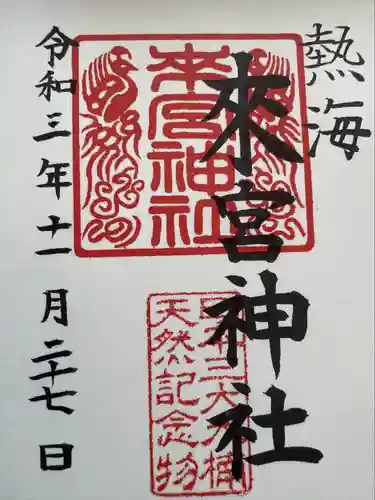 熱海
來宮神社
来宮神社
日本三大大楠
天然記念物
令和三年十一月二十七日